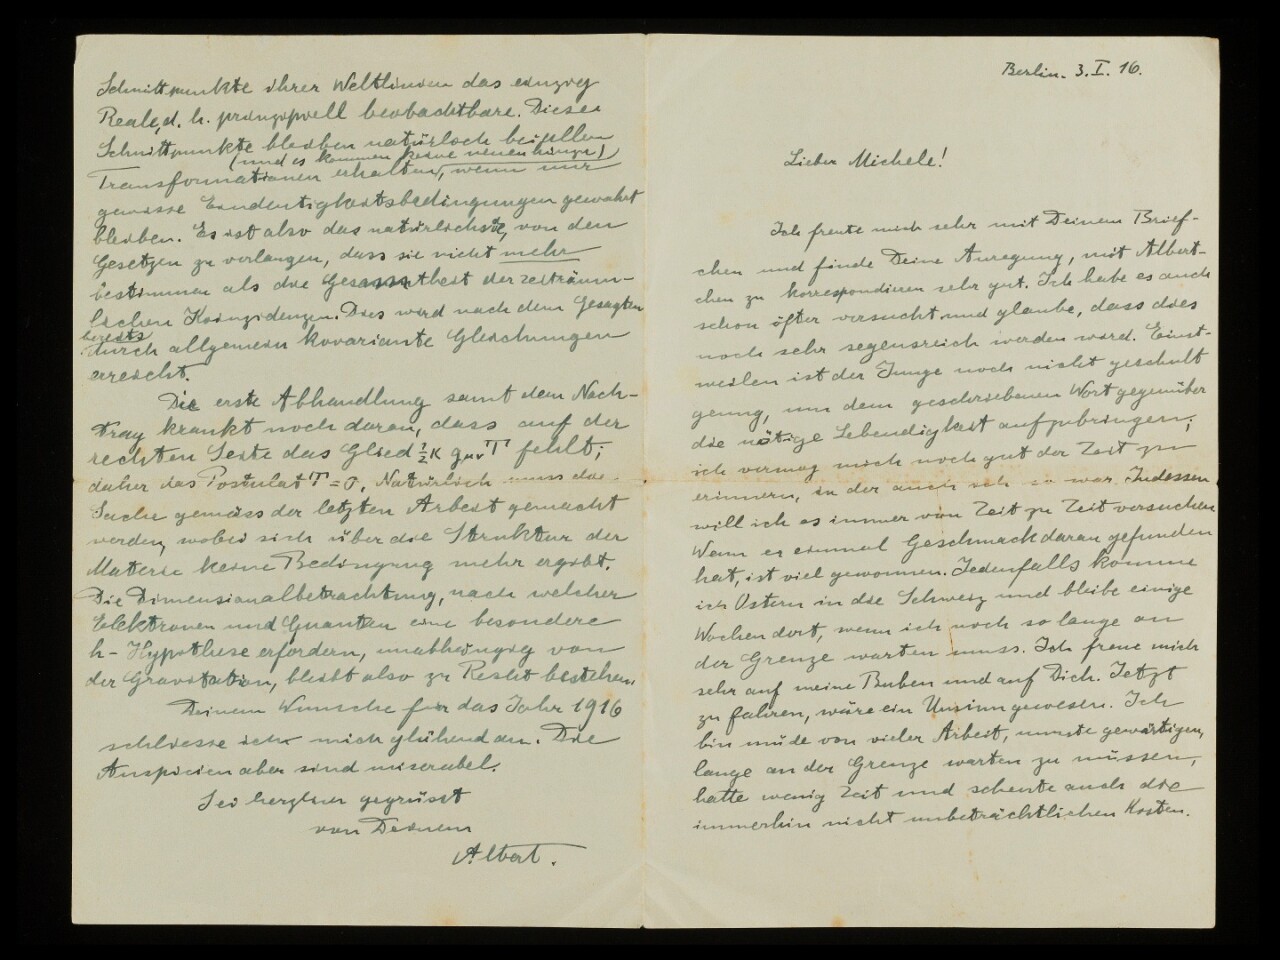 Berlin. 3. I. 16.
Lieber Michele!
Ich freute mich sehr mit Deinem Brief-
chen und finde Deine Anregung, mit Albert-
chen zu korrespondieren sehr gut. Ich habe es auch
schon öfter versucht und glaube, dass dies
noch sehr segensreich werden wird. Einst-
weilen ist der Junge noch nicht geschult
genug, um dem geschriebenen Wort gegenüber
die nötige Lebendigkeit aufzubringen;
ich vermag mich noch gut der Zeit zu
erinnern, in der auch ich so war. Indessen
will ich es immer von Zeit zu Zeit versuchen
Wenn er einmal Geschmack daran gefunden
hat, ist viel gewonnen. Jedenfalls komme
ich Ostern in die Schweiz und bleibe einige
Wochen dort, wenn ich noch so lange an
der Grenze warten muss. Ich freue mich
sehr auf meine Buben und auf Dich. Jetzt
zu fahren, wäre ein Unsinn gewesen. Ich
bin müde von vieler Arbeit, musste gewärtigen,
lange an der Grenze warten zu müssen,
hatte wenig Zeit und scheute auch die
immerhin nicht unbeträchtlichen Kosten.
Schnittpunkte ihrer Weltlinien das einzig
Reale, d. h. prinzipiell beobachtbare. Diese
Schnittpunkte bleiben natürlich bei allen
(und es kommen keine neuen hinzu)
Transformationen erhalten, wenn nur
gewisse Eindeutigkeitsbedingungen gewahrt
bleiben. Es ist also das natürlichste, von den
Gesetzen zu verlangen, dass sie nicht mehr
bestimmen als die Gesamtheit der zeiträum-
lichen Koinzidenzen. Dies wird nach dem Gesagten
bereits
durch allgemein kovariante Gleichungen
erreicht.
Die erste Abhandlung samt dem Nach-
trag krankt noch daran, dass auf der
rechten Seite das Glied ½ κ gμν T fehlt;
daher das Postulat T = 0. Natürlich muss die
Sache gemäss der letzten Arbeit gemacht
werden, wobei sich über die Struktur der
Materie keine Bedingung mehr ergibt.
Die Dimensionalbetrachtung, nach welcher
Elektronen und Quanten eine besondere
h-Hypothese erfordern, unabhängig von
der Gravitation, bleibt also zu Recht bestehen.
Deinem Wunsche für das Jahr 1916
schliesse ich mich glühend an. Die
Auspicien aber sind miserabel.
Sei herzlich gegrüsst
von Deinem
Albert.